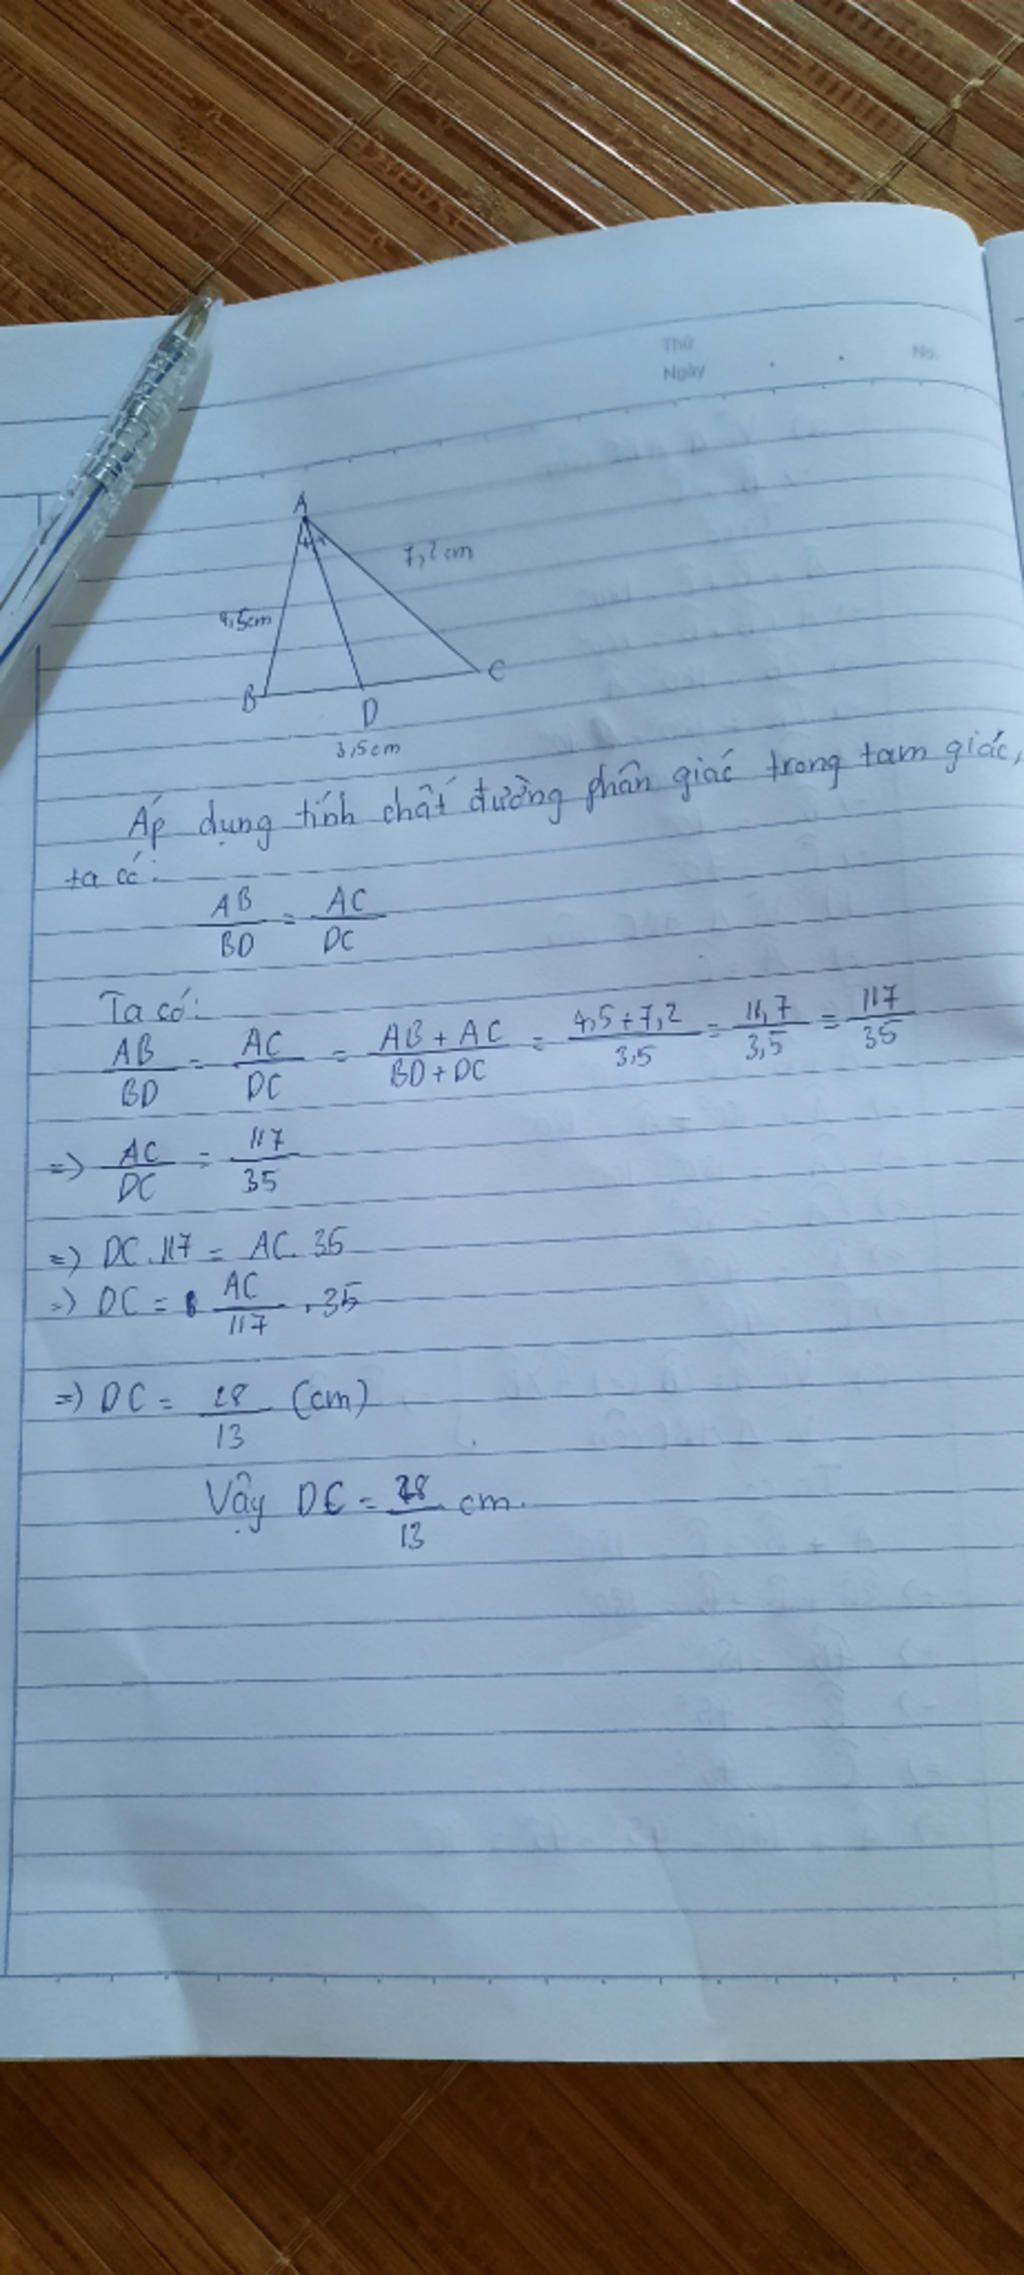 Thứ
Ngày No.
A
7,2cm
4,5cm
B D C
3,5cm
Áp dụng tính chất đường phân giác trong tam giác,
ta có:
AB/BD = AC/DC
Ta có:
AB/BD = AC/DC = AB + AC/BD + DC = 4,5 + 7,2/3,5 = 11,7/3,5 = 117/35
=) AC/DC = 117/35
=) DC.117 = AC.35
=) DC = AC/117 . 35
=) DC = 28/13 (cm)
Vậy DC = 28/13 cm.